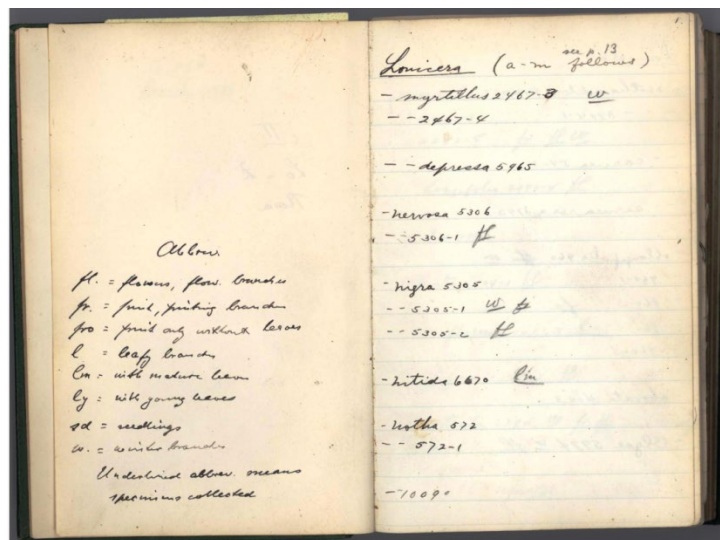 Abbrev.
fl. = flowers, flow. branches
fr. = fruit, fruiting branches
fro = fruit only without leaves
l = leafy branches
lm = with mature leaves
ly = with young leaves
sd = seedlings
w. = winter branches
Underlined abbrev. means
specimens collected
1.
see p. 13
Lonicera (a-m follows)
- myrtillus 2467-3 w
- - 2467-4
- - depressa 5965
- nervosa 5306
- - 5306-1 fl
- nigra 5305
- - 5305-1 w fr
- - 5305-2 fl
- nitida 6670 lm
- notha 572
- - 572-1
- 10090